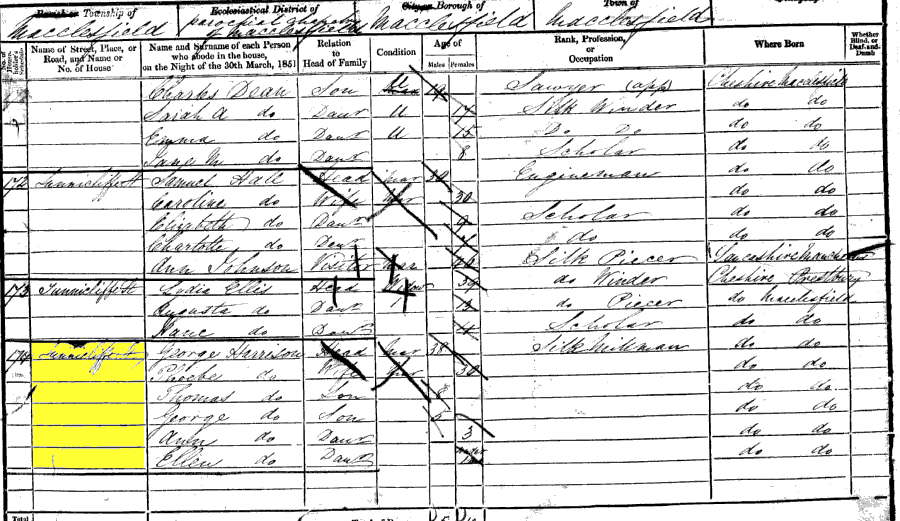 Parish or Township of Ecclesiastical District of City or Borough of Town of
Macclesfield Parochial Macclesfield Macclesfield Macclesfield
Name of Street, Place, or Road, and Name or No. of House Name and Surname of each Person who abode in the house, on the Night of the 30th March, 1851 Relation to Head of Family Condition Age of Males Females Rank, Profession, or Occupation Where Born Whether Blind, or Deaf-and-Dumb
Charles Dean Son Sawyer (app) Cheshire Macclesfield
Sarah A do Daur U 17 Silk Winder do do
Emma do Daur U 15 Do Do do do
Jane M do Daur 8 Scholar do do
172 Tunnicliffe St Samuel Hall Head Mar 30 Engineman do do
Caroline do Wife Mar 30 do do
Elizabeth do Daur Scholar do do
Charlotte do Daur do do do
Ann Johnson Visitor Silk Piecer Lancashire Manchester
173 Tunnicliffe St Lydia Ellis Head Widow 39 do Winder Cheshire Prestbury
Augusta do Daur 13 do Piecer do Macclesfield
do Daur Scholar do do
174 Tunnicliffe St George Harrison Head Mar 38 Silk Milkman do do
Phoebe do Wife Mar 30 do do
Thomas do Son do do
George do Son 5 do do
Ann do Daur 3 do do
Ellen do Daur do do
Total